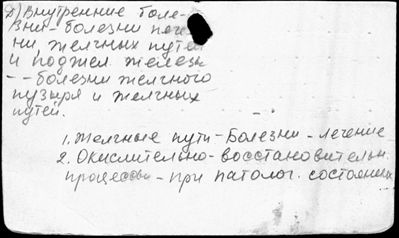 д) Внутренние боле-
зни - болезни пече-
ни, желчных путей
и поджел. железы
- - болезни желчного
пузыря и желчных
путей.
1. Желчные пути - Болезни - лечение
2. Окислительно - восстановительн.
процессы - при патолог. состояниях